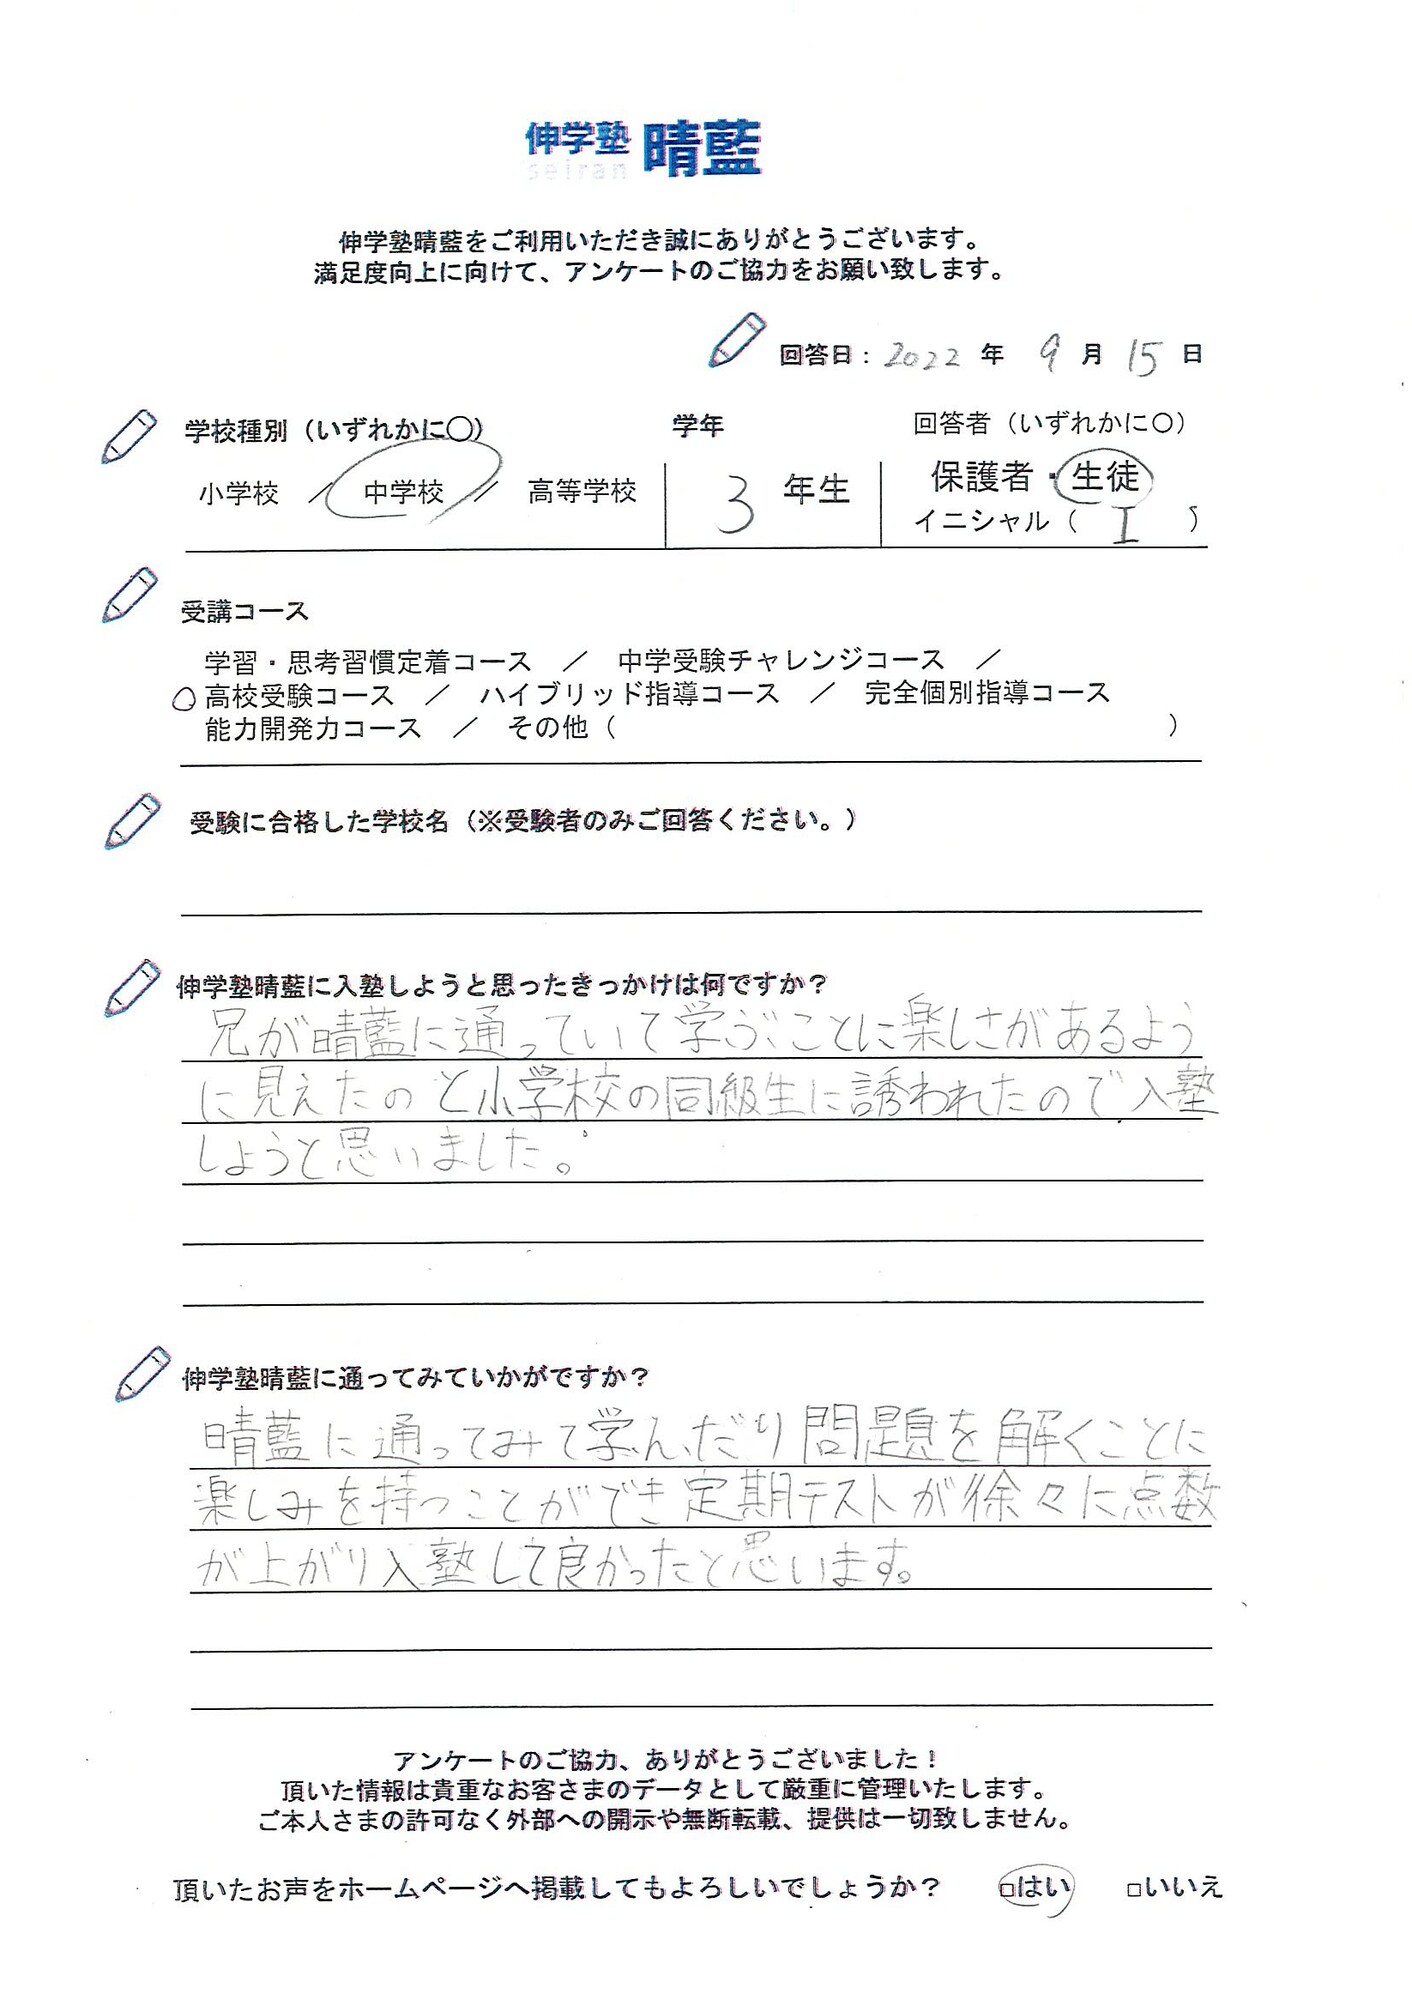 伸学塾 晴藍
seiran
伸学塾晴藍をご利用いただき誠にありがとうございます。
満足度向上に向けて、アンケートのご協力をお願い致します。
回答日：2022 年 9 月 15 日
学校種別（いずれかに〇） 学年 回答者（いずれかに〇）
小学校 ／ 中学校 ／ 高等学校 3 年生 保護者・生徒
イニシャル（ I ）
受講コース
学習・思考習慣定着コース ／ 中学受験チャレンジコース ／
〇高校受験コース ／ ハイブリッド指導コース ／ 完全個別指導コース
能力開発力コース ／ その他（ ）
受験に合格した学校名（※受験者のみご回答ください。）
伸学塾晴藍に入塾しようと思ったきっかけは何ですか？
兄が晴藍に通っていて学ぶことに楽しさがあるよう
に見えたのと小学校の同級生に誘われたので入塾
しようと思いました。
伸学塾晴藍に通ってみていかがですか？
晴藍に通ってみて学んだり問題を解くことに
楽しみを持つことができ定期テストが徐々に点数
が上がり入塾して良かったと思います。
アンケートのご協力、ありがとうございました！
頂いた情報は貴重なお客さまのデータとして厳重に管理いたします。
ご本人さまの許可なく外部への開示や無断転載、提供は一切致しません。
頂いたお声をホームページへ掲載してもよろしいでしょうか？ □はい □いいえ